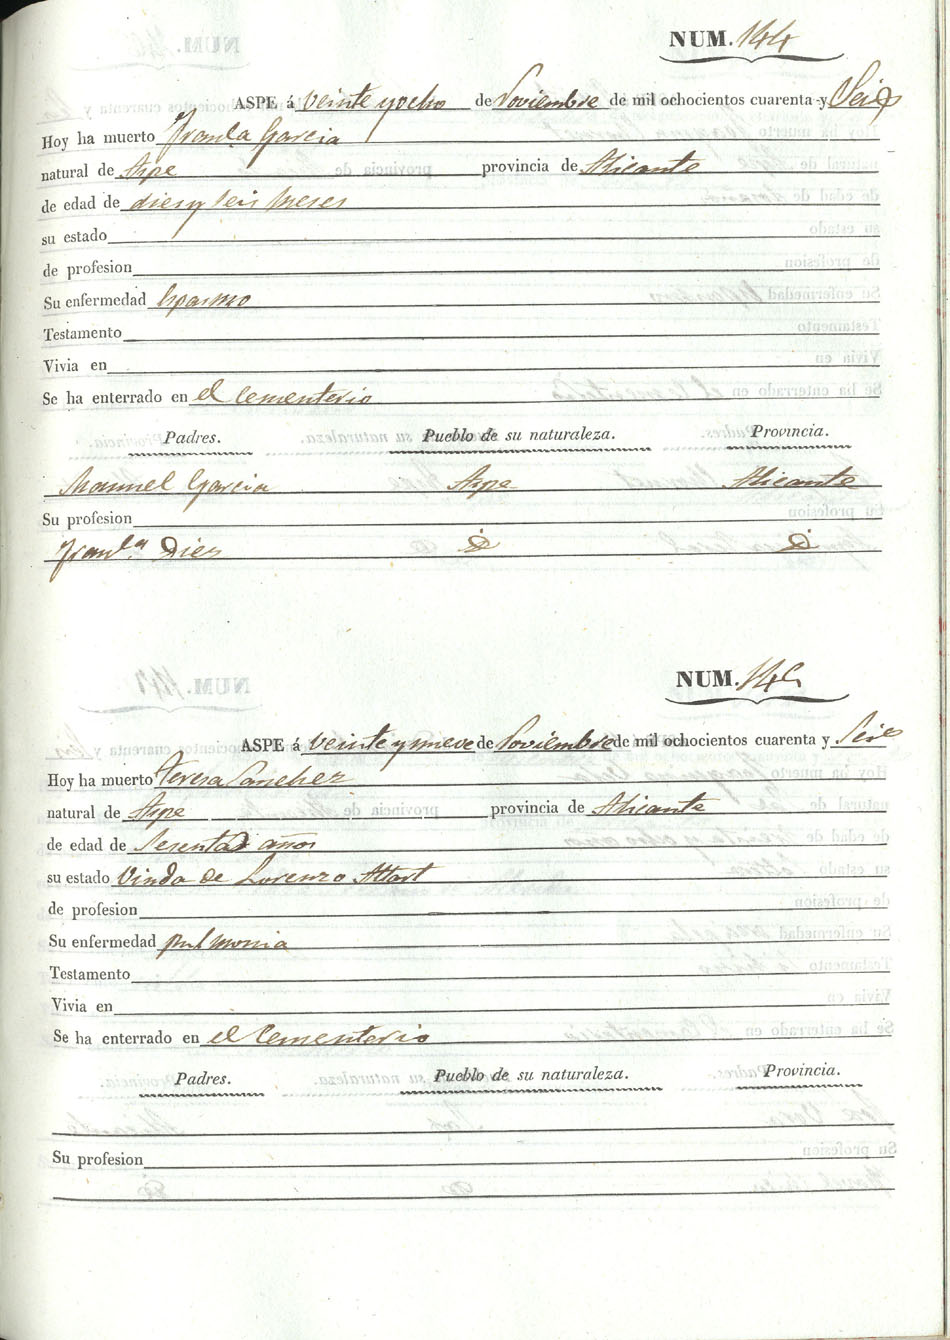 NUM. 144
ASPE á veinte y ocho de Noviembre de mil ochocientos cuarenta y Seis
Hoy ha muerto Franca Garcia
natural de Aspe provincia de Alicante
de edad de dies y seis meses
su estado
de profesion
Su enfermedad Espasmo
Testamento
Vivia en
Se ha enterrado en el Cementerio
Padres. Pueblo de su naturaleza. Provincia.
Manuel Garcia Aspe Alicante
Su profesion
Franca Dies D D
NUM. 145
ASPE á veinte y nueve de Noviembre de mil ochocientos cuarenta y Seis
Hoy ha muerto Teresa Sanchez
natural de Aspe provincia de Alicante
de edad de Sesenta años
su estado Viuda de Lorenzo
de profesion
Su enfermedad pulmonia
Testamento
Vivia en
Se ha enterrado en el Cementerio
Padres. Pueblo de su naturaleza. Provincia.
Su profesion